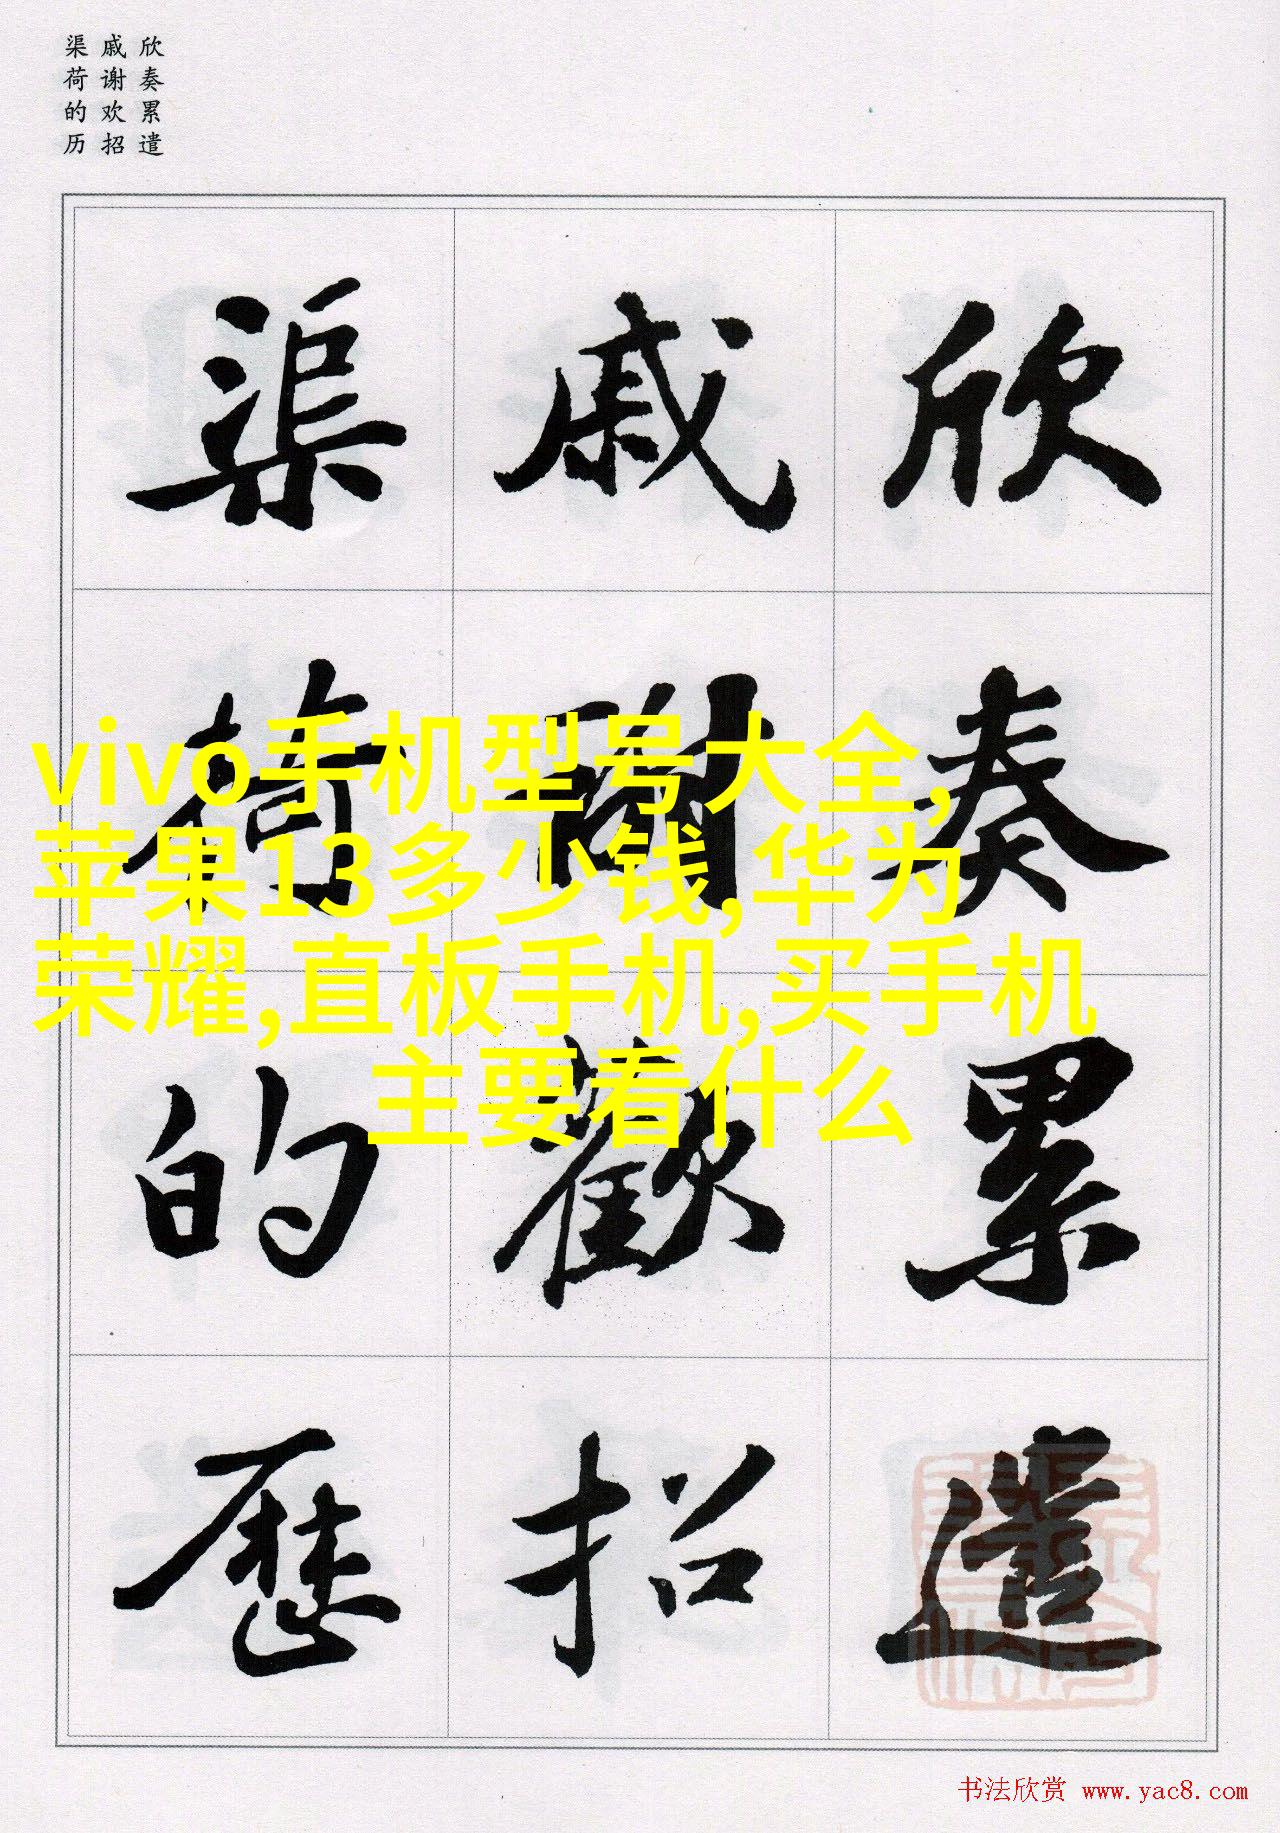 欣奏累遣
戚谢欢招
渠荷的历
欣奏累遣
戚謝歡招
渠荷的歷
vivo手机型号大全,
苹果13多少钱,华为
荣耀,直板手机,买手机
主要看什么
书法欣赏 www.yac8.com